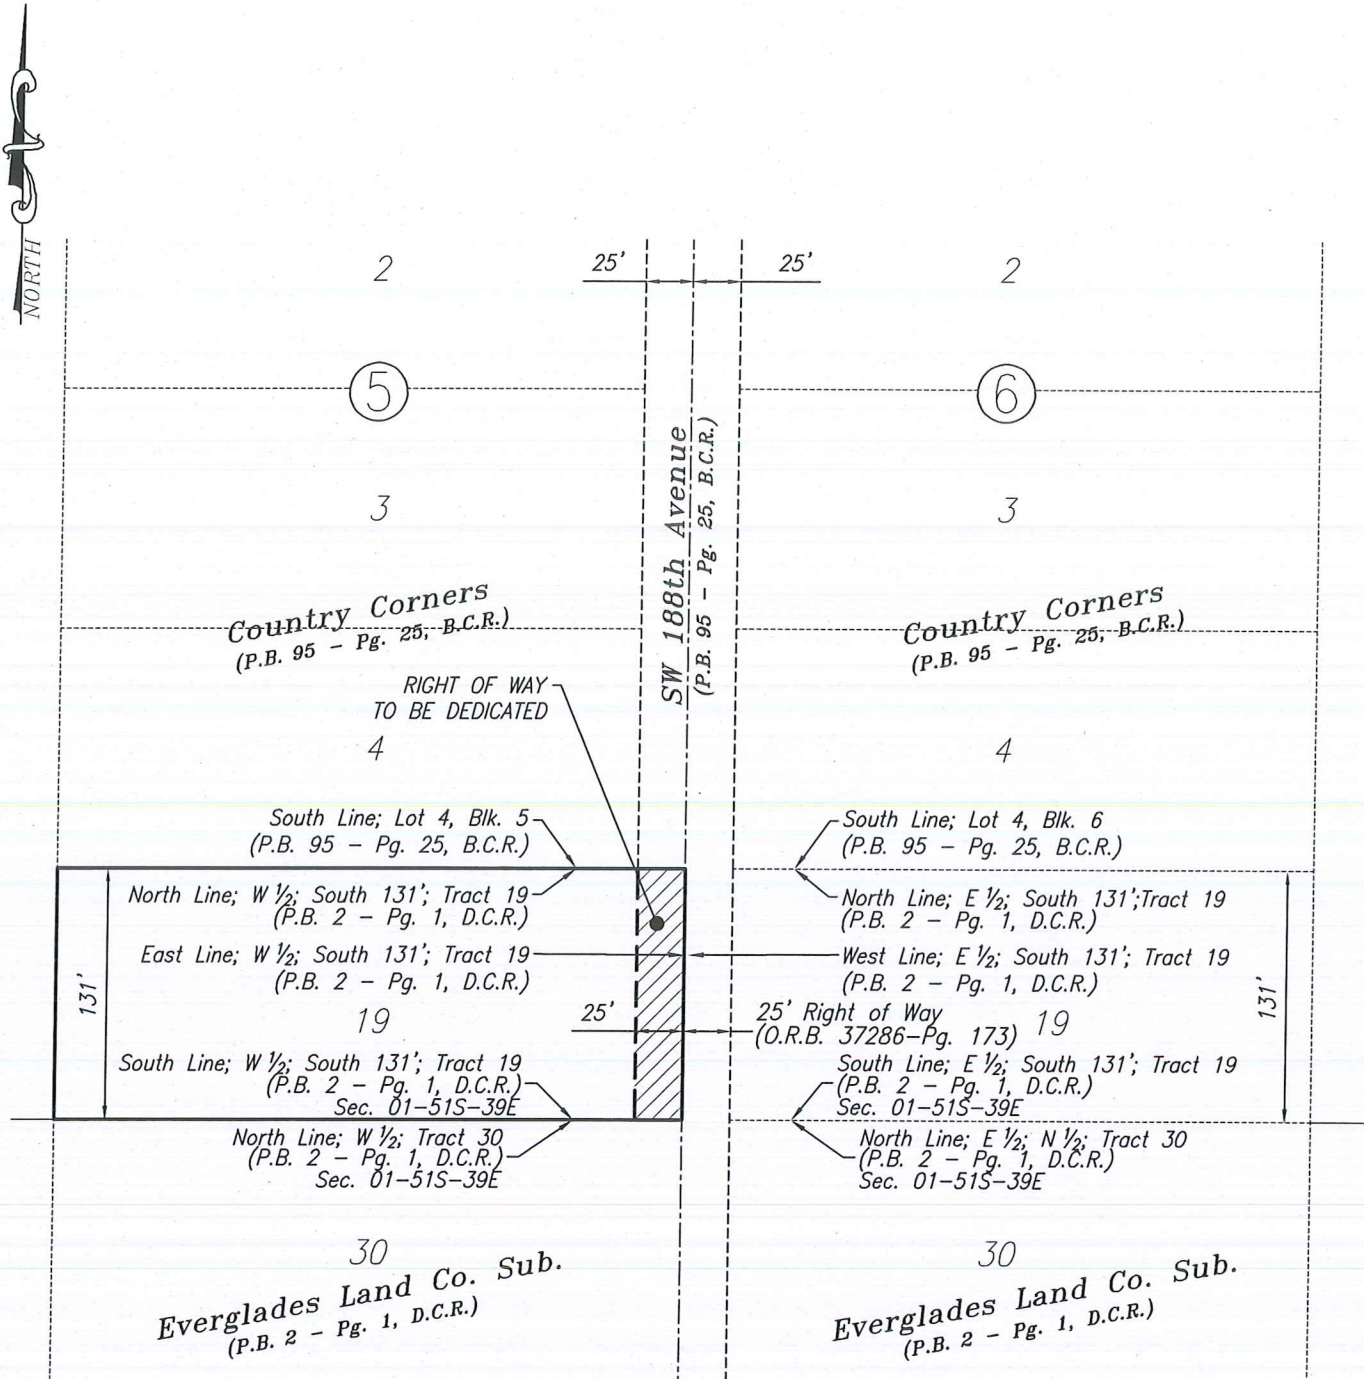 NORTH
2
25'
25'
2
5
6
SW 188th Avenue
(P.B. 95 - Pg. 25, B.C.R.)
3
3
Country Corners
(P.B. 95 - Pg. 25, B.C.R.)
Country Corners
(P.B. 95 - Pg. 25, B.C.R.)
RIGHT OF WAY
TO BE DEDICATED
4
4
South Line; Lot 4, Blk. 5
(P.B. 95 - Pg. 25, B.C.R.)
South Line; Lot 4, Blk. 6
(P.B. 95 - Pg. 25, B.C.R.)
North Line; W ½; South 131'; Tract 19
(P.B. 2 - Pg. 1, D.C.R.)
North Line; E ½; South 131';Tract 19
(P.B. 2 - Pg. 1, D.C.R.)
East Line; W ½; South 131'; Tract 19
(P.B. 2 - Pg. 1, D.C.R.)
West Line; E ½; South 131'; Tract 19
(P.B. 2 - Pg. 1, D.C.R.)
131'
131'
19
25'
25' Right of Way
(O.R.B. 37286-Pg. 173)
19
South Line; W ½; South 131'; Tract 19
(P.B. 2 - Pg. 1, D.C.R.)
Sec. 01-51S-39E
South Line; E ½; South 131'; Tract 19
(P.B. 2 - Pg. 1, D.C.R.)
Sec. 01-51S-39E
North Line; W ½; Tract 30
(P.B. 2 - Pg. 1, D.C.R.)
Sec. 01-51S-39E
North Line; E ½; N ½; Tract 30
(P.B. 2 - Pg. 1, D.C.R.)
Sec. 01-51S-39E
30
30
Everglades Land Co. Sub.
(P.B. 2 - Pg. 1, D.C.R.)
Everglades Land Co. Sub.
(P.B. 2 - Pg. 1, D.C.R.)